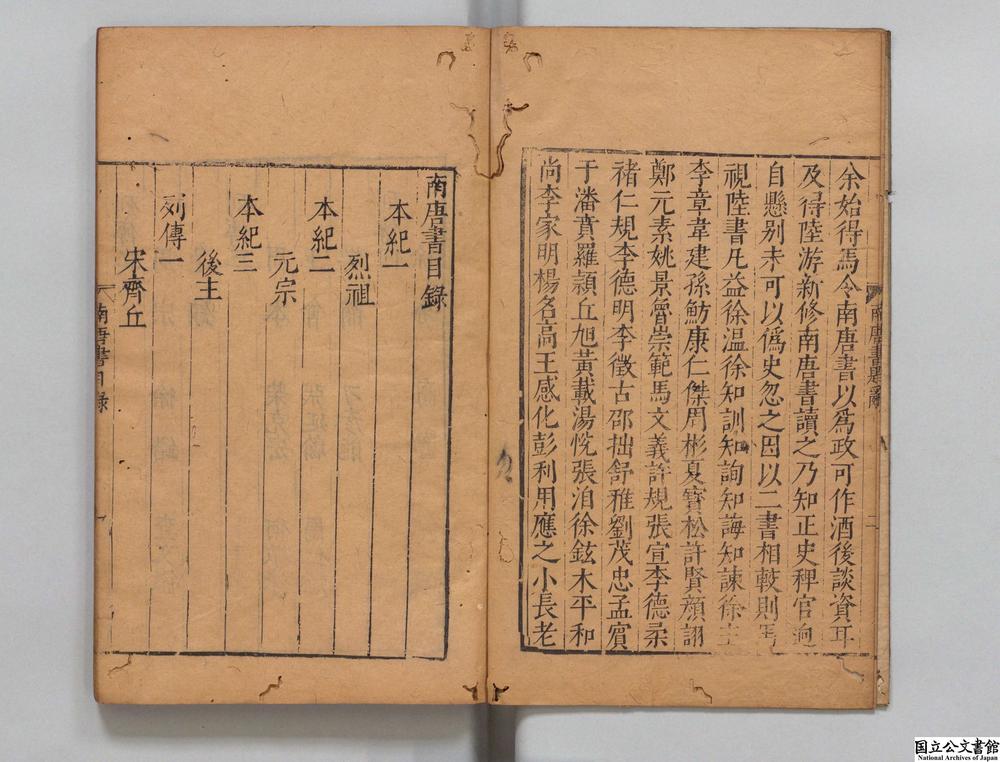 余始得馬令南唐書以爲政可作酒後談資耳
及得陸游新修南唐書讀之乃知正史稗官逈
自懸别未可以僞史忽之因以二書相較則馬
視陸書凡益徐温徐知訓知詢知誨知諫徐主
李章韋建孫魴康仁傑周彬夏寶松許賢顔詡
鄭元素姚景魯崇範馬文義許規張宣李德柔
褚仁規李德明李徵古邵拙舒雅劉茂忠孟賓
于潘賁羅頴丘旭黃載湯恱張洎徐鉉木平和
尚李家明楊名高王感化彭利用應之小長老
南唐書目錄
本紀一
烈祖
本紀二
元宗
本紀三
後主
列傳一
宋齊丘
南唐書目錄
国立公文書館
National Archives of Japan